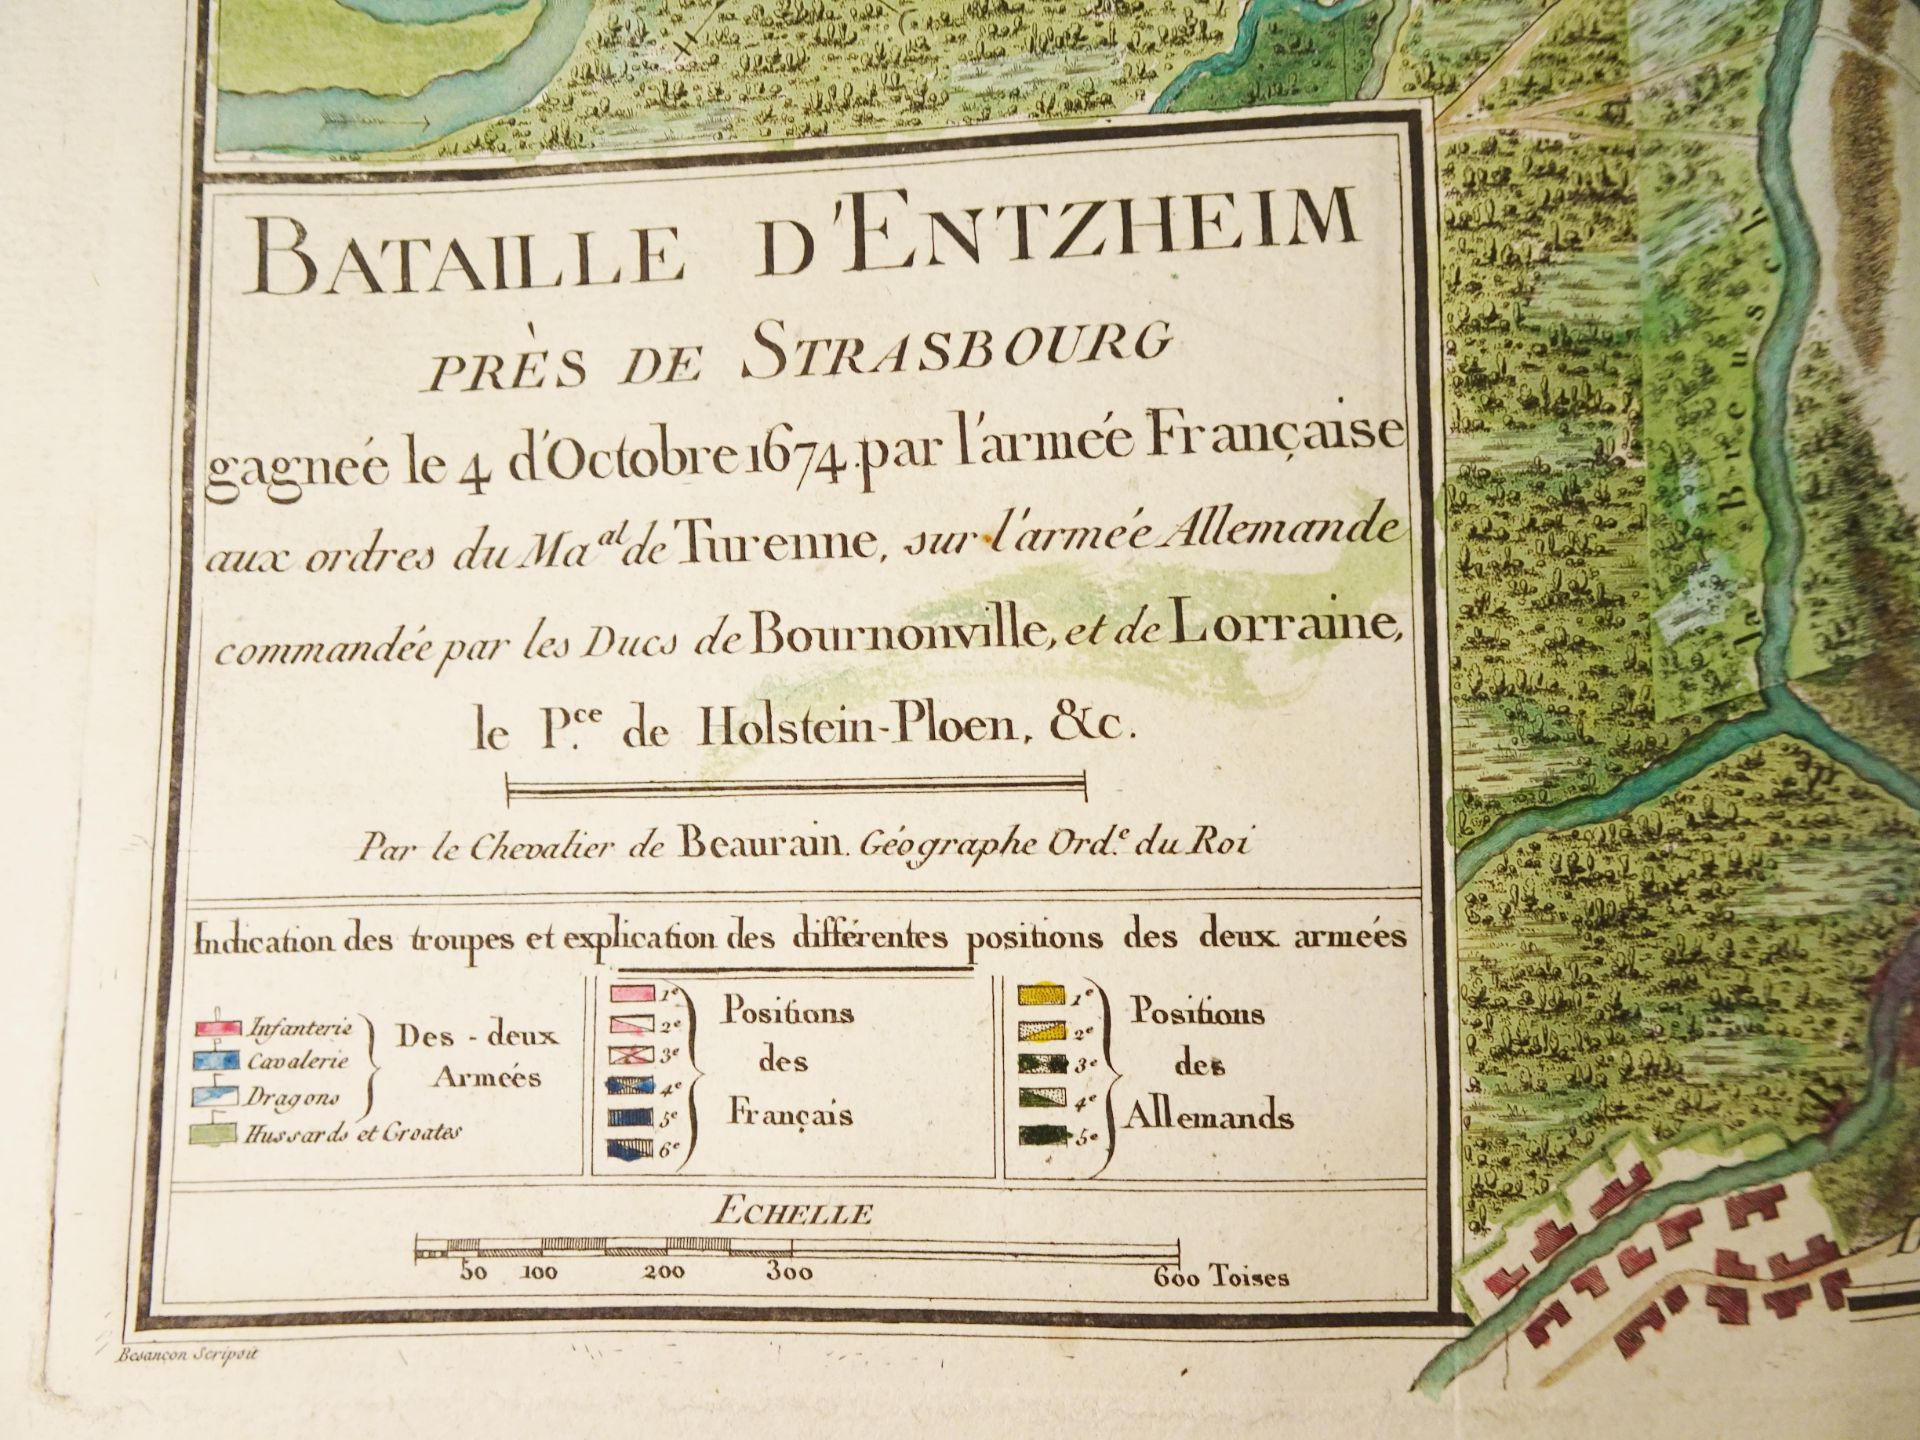 BATAILLE D'ENTZHEIM
PRÈS DE STRASBOURG
gagneé le 4 d'Octobre 1674. par l'armeé Française
aux ordres du Ma.al de Turenne, sur l'armeé Allemande
commandée par les Ducs de Bournonville, et de Lorraine,
le P.ce de Holstein-Ploen, &c.
Par le Chevalier de Beaurain. Géographe Ord.e du Roi
Indication des troupes et explication des différentes positions des deux armeés
Infanterie
Cavalerie
Dragons
Hussards et Croates
Des-deux
Armeés
1e
2e
3e
4e
5e
6e
Positions
des
Français
1e
2e
3e
4e
5e
Positions
des
Allemands
ECHELLE
50 100 200 300 600 Toises
Besançon Scripsit
la Breusch
de